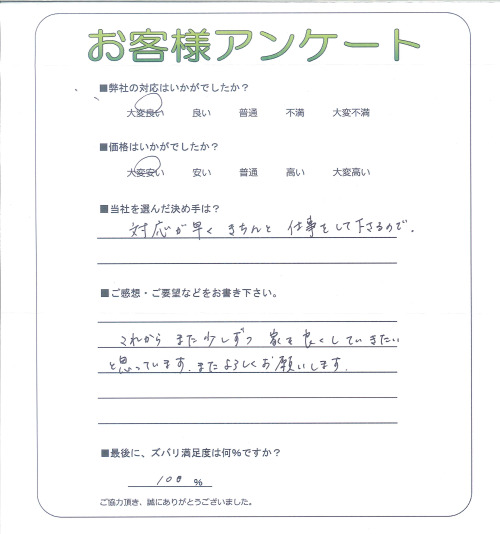 お客様アンケート
■弊社の対応はいかがでしたか？
大変良い 良い 普通 不満 大変不満
■価格はいかがでしたか？
大変安い 安い 普通 高い 大変高い
■当社を選んだ決め手は？
対応が早く きちんと 仕事をして下さるので.
■ご感想・ご要望などをお書き下さい。
これから また少しずつ 家を良くしていきたい
と思っています. また よろしくお願いします.
■最後に、ズバリ満足度は何%ですか？
100 %
ご協力頂き、誠にありがとうございました。